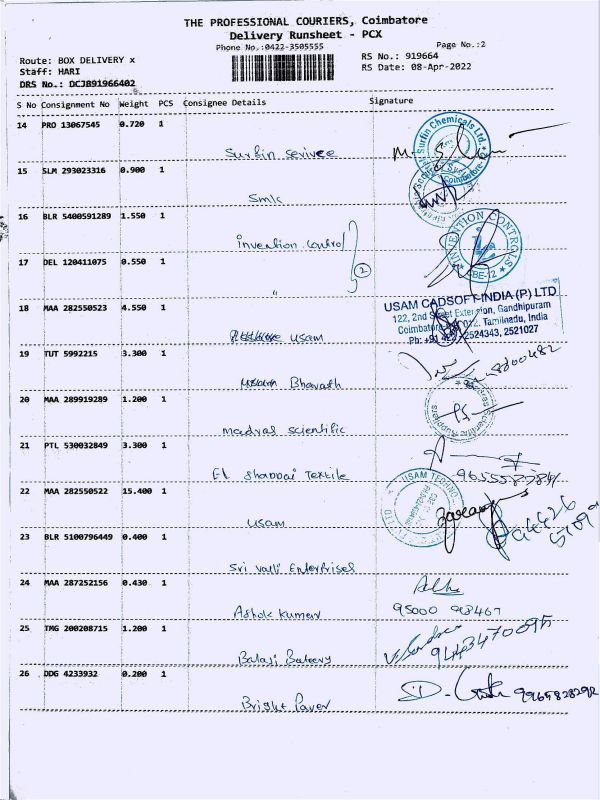 THE PROFESSIONAL COURIERS, Coimbatore
Delivery Runsheet - PCX
Phone No.:0422-3505555
Page No.:2
Route: BOX DELIVERY x
RS No.: 919664
Staff: HARI
RS Date: 08-Apr-2022
DRS No.: DCJ891966402
S No Consignment No Weight PCS Consignee Details Signature
14 PRO 13067545 0.720 1
Surfin Chemicals
Surfin
15 SLM 293023316 0.900 1
Coimbatore
Smlc
16 BLR 5400591289 1.550 1
INVENTION CONTROLS
Invention Control
17 DEL 120411075 0.550 1
2
"
CBE-12
18 MAA 282550523 4.550 1
USAM CADSOFT INDIA (P) LTD
122, 2nd Street Extension, Gandhipuram
Coimbatore 012. Tamilnadu, India
Ph: +91 422 2524343, 2521027
usam
19 TUT 5992215 3.300 1
Bharath
20 MAA 289919289 1.200 1
madras scientific
21 PTL 530032849 3.300 1
El shaddai Textile
22 MAA 282550522 15.400 1
USAM TECHNO
usam
23 BLR 5100796449 0.400 1
Sri valli Enterprises
24 MAA 287252156 0.430 1
Ashok Kumar
95000 98467
25 TMG 200208715 1.200 1
Balaji Bateery
26 DDG 4233932 0.200 1
Bright Paver